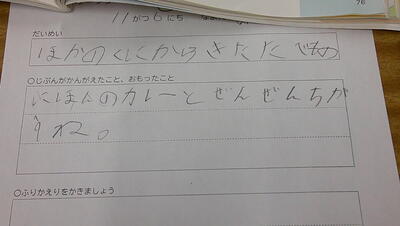 11がつ6にち
だいめい
ほかのくにからきたたべもの
○じぶんがかんがえたこと、おもったこと
にほんのカレーとぜんぜんちが
うね。
○ふりかえりをかきましょう